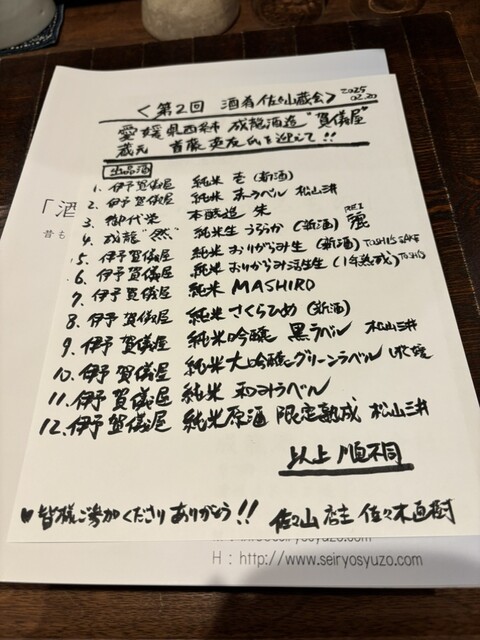 <第2回 酒肴佐々山蔵会> 2025 02.20
愛媛県西条市 成龍酒造 "賀儀屋"
蔵元 首藤英友氏を迎えて!!
出品酒
1. 伊予賀儀屋 純米 壱 (新酒)
2. 伊予賀儀屋 純米 赤ラベル 松山三井
3. 御代栄 本醸造 朱
4. 成龍 "然" 純米生 うららか (新酒) 麗
5. 伊予賀儀屋 純米 おりがらみ生 (新酒) TOSHI'S SAKE
6. 伊予賀儀屋 純米 おりがらみ活性生 (1年熟成)
7. 伊予賀儀屋 純米 MASHIRO
8. 伊予賀儀屋 純米 さくらひめ (新酒)
9. 伊予賀儀屋 純米吟醸 黒ラベル 松山三井
10. 伊予賀儀屋 純米大吟醸 グリーンラベル
11. 伊予賀儀屋 純米 和みラベル
12. 伊予賀儀屋 純米原酒 限定熟成 松山三井
以上 順不同
♥ 皆様ご参加くださりありがとう!! 佐々山 店主 佐々木直樹
「酒
昔も
H : http://www.seiryosyuzo.com